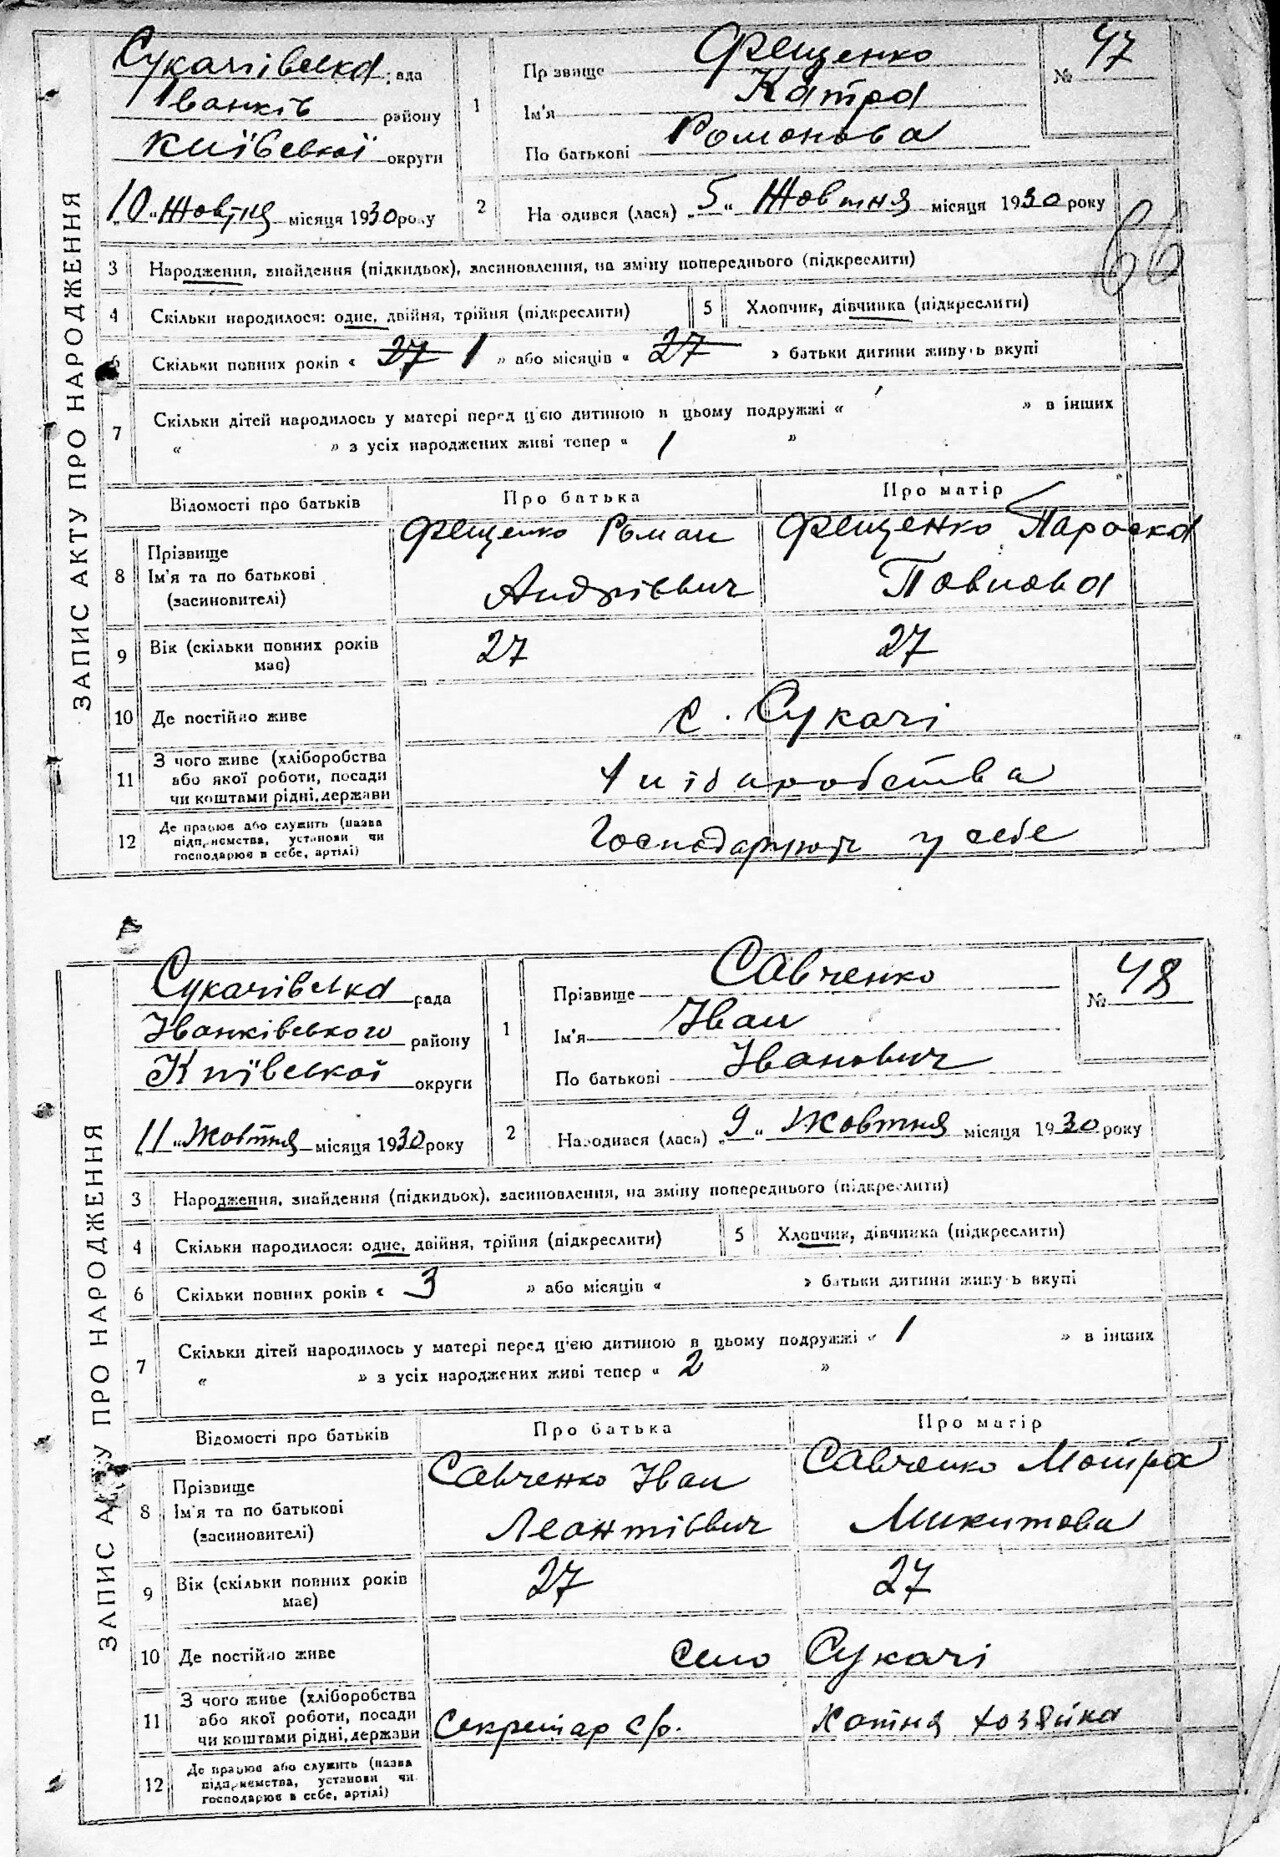 ЗАПИС АКТУ ПРО НАРОДЖЕННЯ
Сукачівська рада
Іванків району
Київської округи
10 „Жовтня місяця 1930 року
1
Прізвище Фещенко
Ім'я Катра
По батькові Романова
№ 47
2
На одився (лася) „5“ Жовтня місяця 1930 року
66
3 Народження, знайдення (підкидьок), засиновлення, на зміну попереднього (підкреслити)
4 Скільки народилося: одне, двійня, трійня (підкреслити)
5 Хлопчик, дівчинка (підкреслити)
6 Скільки повних років « 27 1 » або місяців « 27 » батьки дитини живу·ь вкупі
7 Скільки дітей народилось у матері перед ц'єю дитиною в цьому подружжі « ' » в інших
« » з усіх народжених живі тепер « 1 »
Відомості про батьків
Про батька
Про матір
8 Прізвище
Ім'я та по батькові
(засиновителі)
Фещенко Роман
Андрієвич
Фещенко Параска
Павлова
9 Вік (скільки повних років
має)
27
27
10 Де постійно живе
с. Сукачі
11 З чого живе (хліборобства
або якої роботи, посади
чи коштами рідні, держави
Хліборобства
12 Де працює або служить (назва
підприємства, установи чи
господарює в себе, артілі)
Господарюють у себе
ЗАПИС АКТУ ПРО НАРОДЖЕННЯ
Сукачівська рада
Іванківського району
Київської округи
11 „Жовтня місяця 1930 року
1
Прізвище Савченко
Ім'я Іван
По батькові Іванович
№ 48
2
Народився (лася) „9“ Жовтня місяця 1930 року
3 Народження, знайдення (підкидьок), засиновлення, на зміну попереднього (підкреслити)
4 Скільки народилося: одне, двійня, трійня (підкреслити)
5 Хлопчик, дівчинка (підкреслити)
6 Скільки повних років « 3 » або місяців « » батьки дитини живу·ь вкупі
7 Скільки дітей народилось у матері перед ц'єю дитиною в цьому подружжі « 1 » в інших
« » з усіх народжених живі тепер « 2 »
Відомості про батьків
Про батька
Про матір
8 Прізвище
Ім'я та по батькові
(засиновителі)
Савченко Іван
Леонтієвич
Савченко Мотра
Микитова
9 Вік (скільки повних років
має)
27
27
10 Де постійно живе
село Сукачі
11 З чого живе (хліборобства
або якої роботи, посади
чи коштами рідні, держави
Секретар с/р.
Хатня хозяйка
12 Де працює або служить (назва
підприємства, установи чи
господарює в себе, артілі)